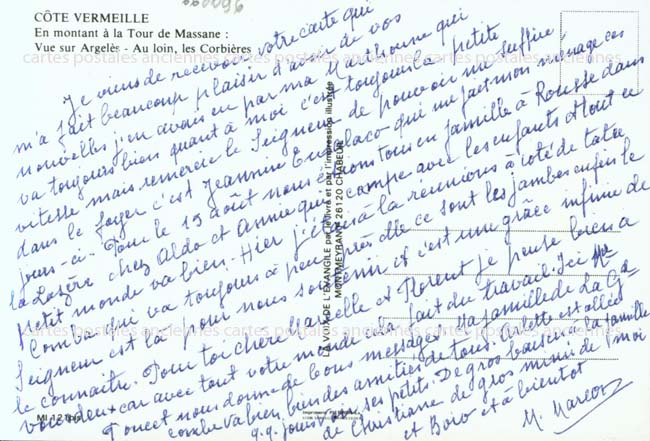 CÔTE VERMEILLE
En montant à la Tour de Massane :
Vue sur Argelès - Au loin, les Corbières
Je viens de recevoir votre carte qui
m'a fait beaucoup plaisir d'avoir de vos
nouvelles j'en avais eu par ma qui
va toujours bien quant à moi c'est toujours la petite
vitesse mais remercie le Seigneur de pouvoir me suffire,
dans le foyer c'est Jeannine qui me fait mon ménage ces
jours ci. Pour le 15 août nous étions tous en famille à Rousse dans
la Lozère chez Aldo et Annie qui campe avec les enfants et tout ce
petit monde va bien. Hier j'étais à la réunion à côté de tata
Comba qui va toujours à peu près elle ce sont les jambes enfin le
Seigneur est là pour nous soutenir et c'est une grâce infinie de
le connaître. Pour toi chère et Florent je pense bien à
vous deux car avec tout votre monde cela fait du travail. Ici Mr
nous donne de bons messages. La famille de La
Combe va bien, bien des amitiés de tous. est allée
q.q. jours voir ses petits. De gros baisers de la famille
de Christiane de gros mimis de moi
et Boro et à bientôt
M. Marcon
LA VOIX DE L'ÉVANGILE par le livre et par l'impression illustrée
MONTMEYRAN 26120 CHABEUIL
cartes postales anciennes